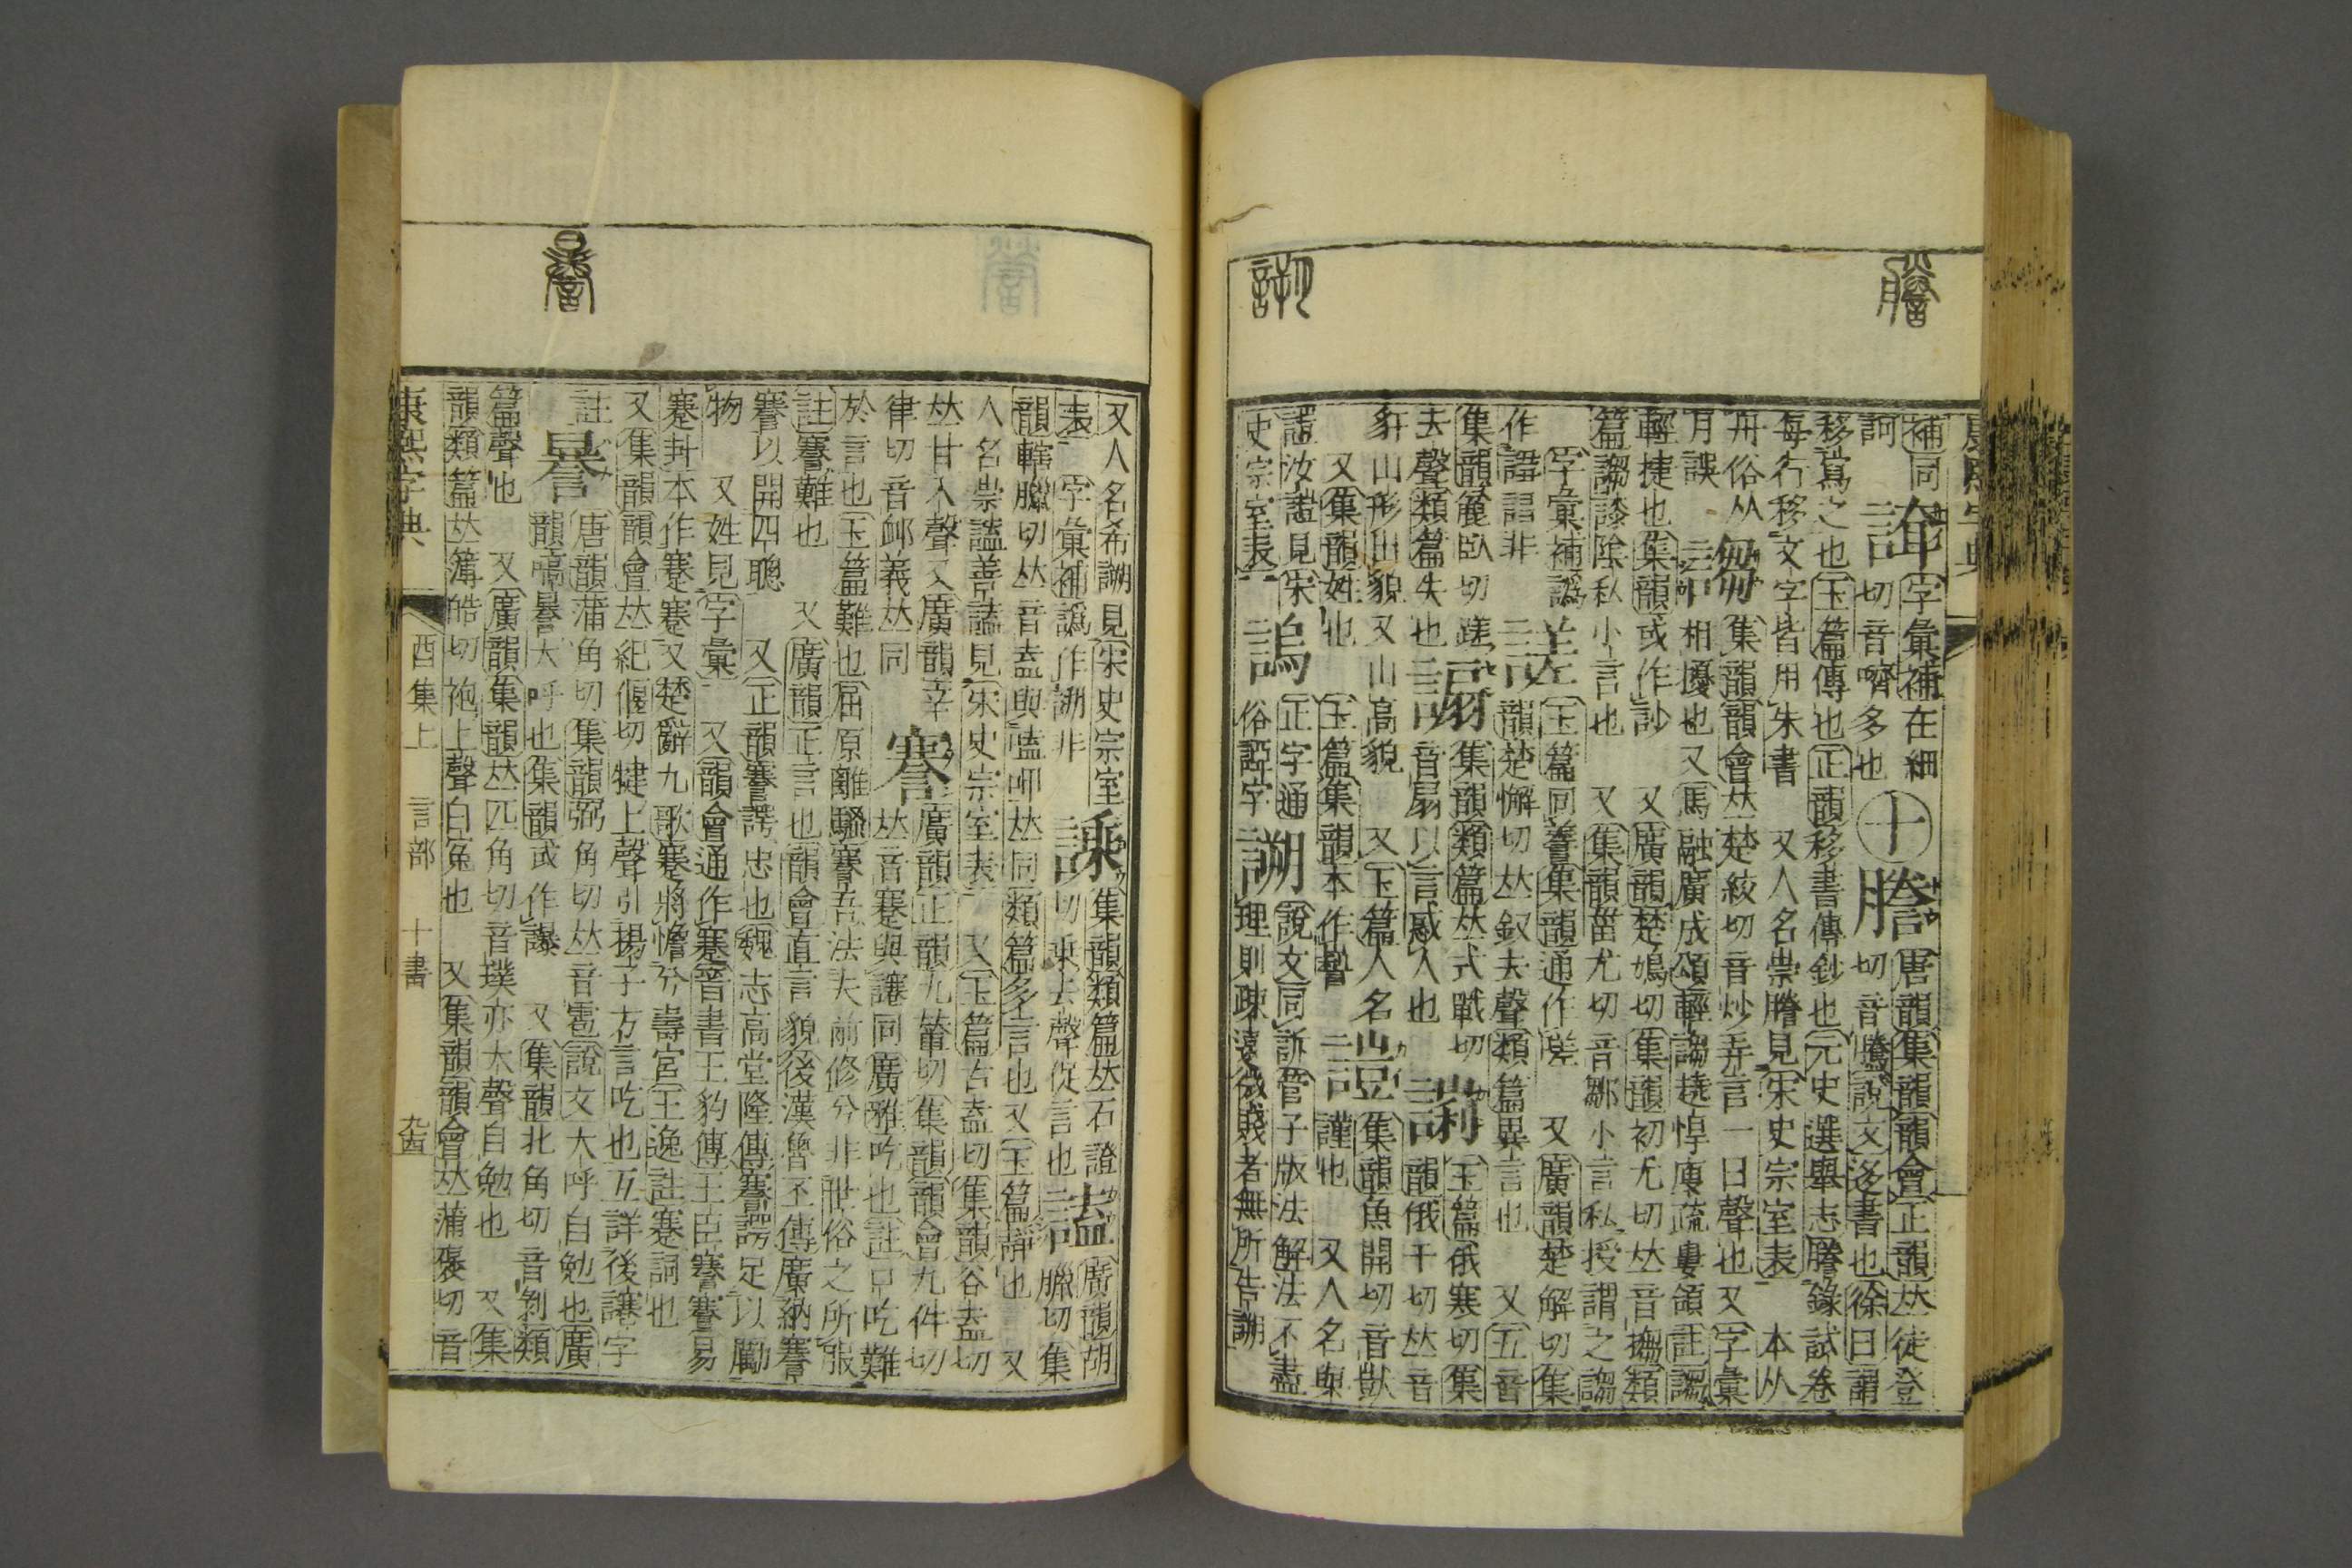 補同 字彙補在細 十 謄 唐韻集韻韻會正韻𠀤徒登
訶 切音嚌多也 切音騰說文迻書也徐曰謂
移寫之也玉篇傳也正韻移書傳鈔也元史選舉志謄錄試卷
每行移文字皆用朱書 又人名崇謄見宋史宗室表 本从
舟俗从 謅 集韻韻會𠀤楚絞切音炒弄言一曰聲也又字彙
月誤 相擾也又馬融廣成頌輕謅趬悍廋疏婁領註謅
輕捷也集韻或作訬 又廣韻楚鳩切集韻初尤切𠀤音搊類
篇謅謻陰私小言也 又集韻甾尤切音鄒小言私授謂之謅
字彙補譌 謋 玉篇同𧨲集韻通作嗟 又廣韻楚解切集
作 非 韻楚懈切𠀤釵去聲類篇異言也 又五音
集韻麄臥切蹉 謆 集韻類篇𠀤式戰切 玉篇俄寒切集
去聲類篇失也 音扇以言惑人也 韻俄干切𠀤音
豻山形山貌又山高貌 又玉篇人名 集韻魚開切音獃
又集韻姓也 玉篇集韻本作 謹也 又人名與
汝 見宋 䧹 正字通 謿 說文同訴管子版法解法不盡
史宗室表 俗 字 理則疎遠微賤者無所告
康熙字典
又人名希 見宋史宗室 集韻類篇𠀤石證 謚 廣韻胡
表 字彙補譌作 非 切乘去聲促言也 臘切集
韻轄臘切𠀤音盍與嗑呷𠀤同類篇多言也又玉篇靜也 又
人名崇 善 見宋史宗室表 又玉篇古盍切集韻谷盍切
𠀤甘入聲又廣韻辛 謇 廣韻正韻九輦切集韻韻會九件切
律切音卹義𠀤同 𠀤音蹇與讓同廣雅吃也註口吃難
於言也玉篇難也屈原離騷謇吾法夫前修兮非世俗之所服
註謇難也 又廣韻正言也韻會直言貌後漢魯丕傳廣納謇
謇以開四聰 又正韻謇諤忠也魏志高堂隆傳謇諤足以勵
物 又姓見字彙 又韻會通作蹇晉書王豹傳王臣謇謇易
蹇卦本作蹇蹇又楚辭九歌蹇將憺兮壽宮王逸註蹇詞也
又集韻韻會𠀤紀偃切犍上聲引揚子方言吃也互詳後讓字
註 謈 唐韻蒲角切集韻弼角切𠀤音雹說文大呼自勉也廣
韻嗃謈大呼也集韻或作謤 又集韻北角切音剝類
篇聲也 又廣韻集韻𠀤匹角切音璞亦大聲自勉也 又集
韻類篇𠀤簿皓切袍上聲白冤也 又集韻韻會𠀤蒲襃切音
康熙字典 酉集上 言部 十畫